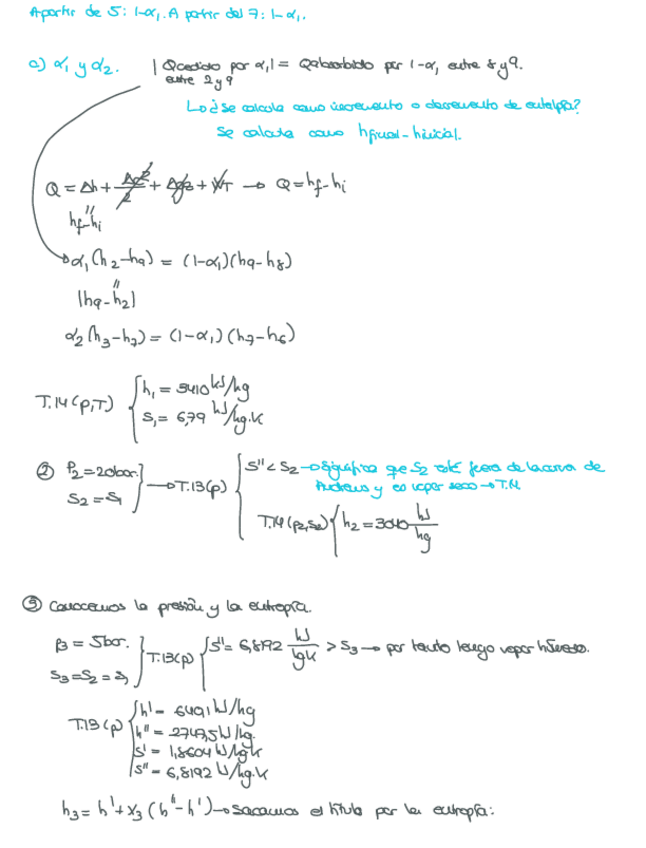 A partir de 5: 1-α₁. A partir del 7: 1-α₁.
a) α₁ y α₂. |Qcedido por α₁| = Qabsorbido por 1-α₁ entre 8 y 9.
entre 2 y 9
↳ ¿Se calcula como incremento o decremento de entalpía?
Se calcula como hfinal - hinicial.
Q = Δh + Δc²/2 + Δgz + WT → Q = hf-hi
"
hf-hi
α₁(h₂-h₉) = (1-α₁)(h₉-h₈)
"
|h₉-h₂|
α₂(h₃-h₇) = (1-α₁)(h₇-h₆)
T.14(p,T) { h₁ = 3410 kJ/kg
s₁ = 6,79 kJ/kg·K
② P₂ = 20bar. } → T.13(p) { s'' < s₂ → significa que s₂ está fuera de la curva de
s₂ = s₁ Andrews y es vapor seco → T.14
T.14(p₂,s₂) { h₂ = 3040 kJ/kg
③ Conocemos la presión y la entropía.
p₃ = 5bar. } T.13(p) { s'' = 6,8192 kJ/kgK > s₃ → por tanto tengo vapor húmedo.
s₃ = s₂ = s₁
T.13(p) { h' = 640,1 kJ/kg
h'' = 2747,5 kJ/kg.
s' = 1,8604 kJ/kgK
s'' = 6,8192 kJ/kg·K
h₃ = h' + x₃(h''-h') → sacamos el título por la entropía: